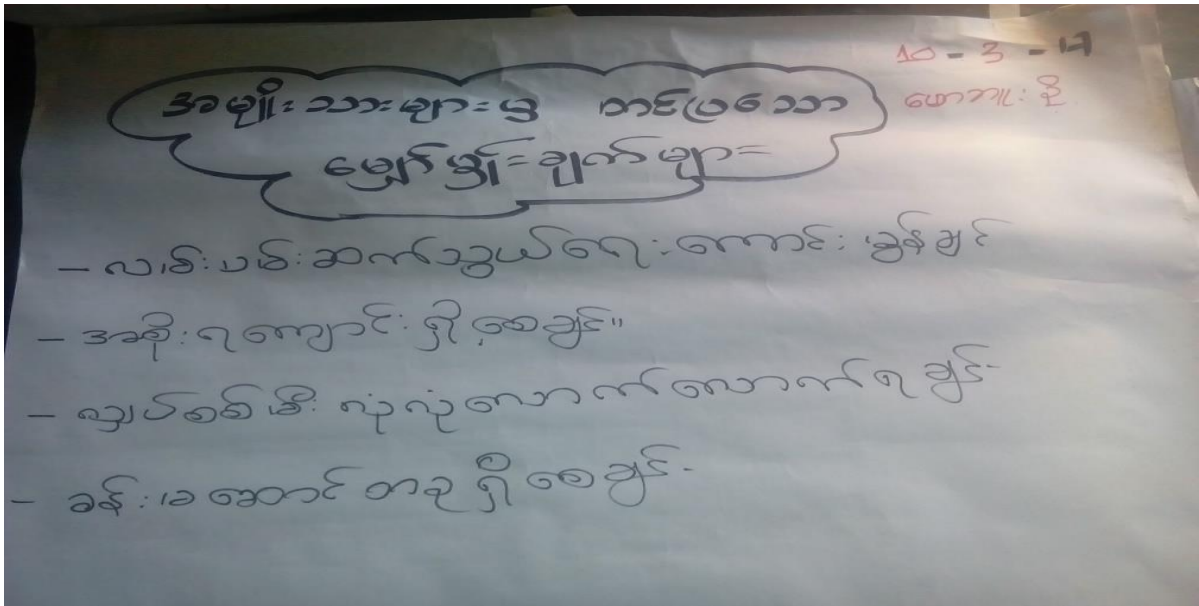 10 - 3 - 17
ဟောဘူး နို
အမျိုးသားများမှ တင်ပြသော
မျှော်မှန်းချက်များ
- လမ်းပမ်းဆက်သွယ်ရေးကောင်းမွန်ချင်
- အစိုးရကျောင်းရှိစေချင်။
- လျှပ်စစ်မီး လုံလုံလောက်လောက်ရချင်
- ခန်းမဆောင်တခုရှိစေချင်